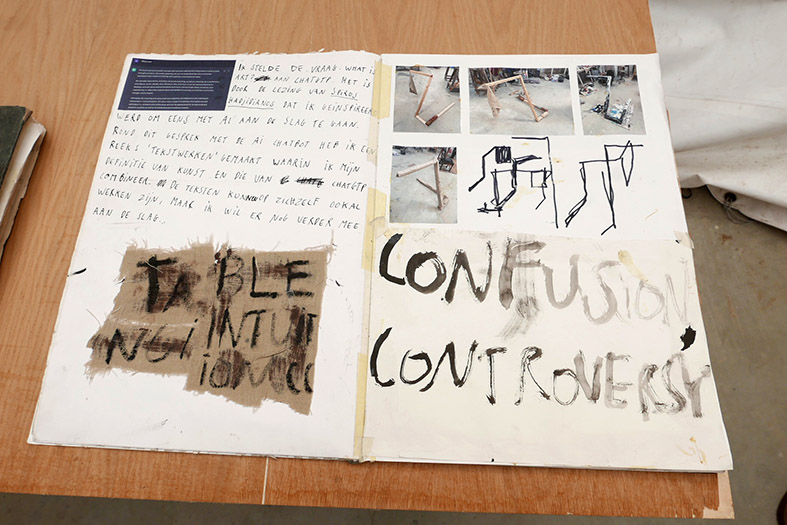 IK STELDE DE VRAAG: WHAT IS
ART? AAN CHATGTP. HET IS
DOOR DE LEZING VAN SPIROS
HADJIDJANOS DAT IK GEÏNSPIREERD
WERD OM EENS MET AI AAN DE SLAG TE GAAN.
ROND DIT GESPREK MET DE AI CHATBOT HEB IK EEN
REEKS 'TEKSTWERKEN' GEMAAKT WAARIN IK MIJN
DEFINITIE VAN KUNST EN DIE VAN CHATGTP
COMBINEER. DE TEKSTEN KUNNEN OP ZICHZELF OOK AL
WERKEN ZIJN, MAAR IK WIL ER NOG VERDER MEE
AAN DE SLAG...
TABLE
NGI INTUIT
CONFUSION
CONTROVERSY